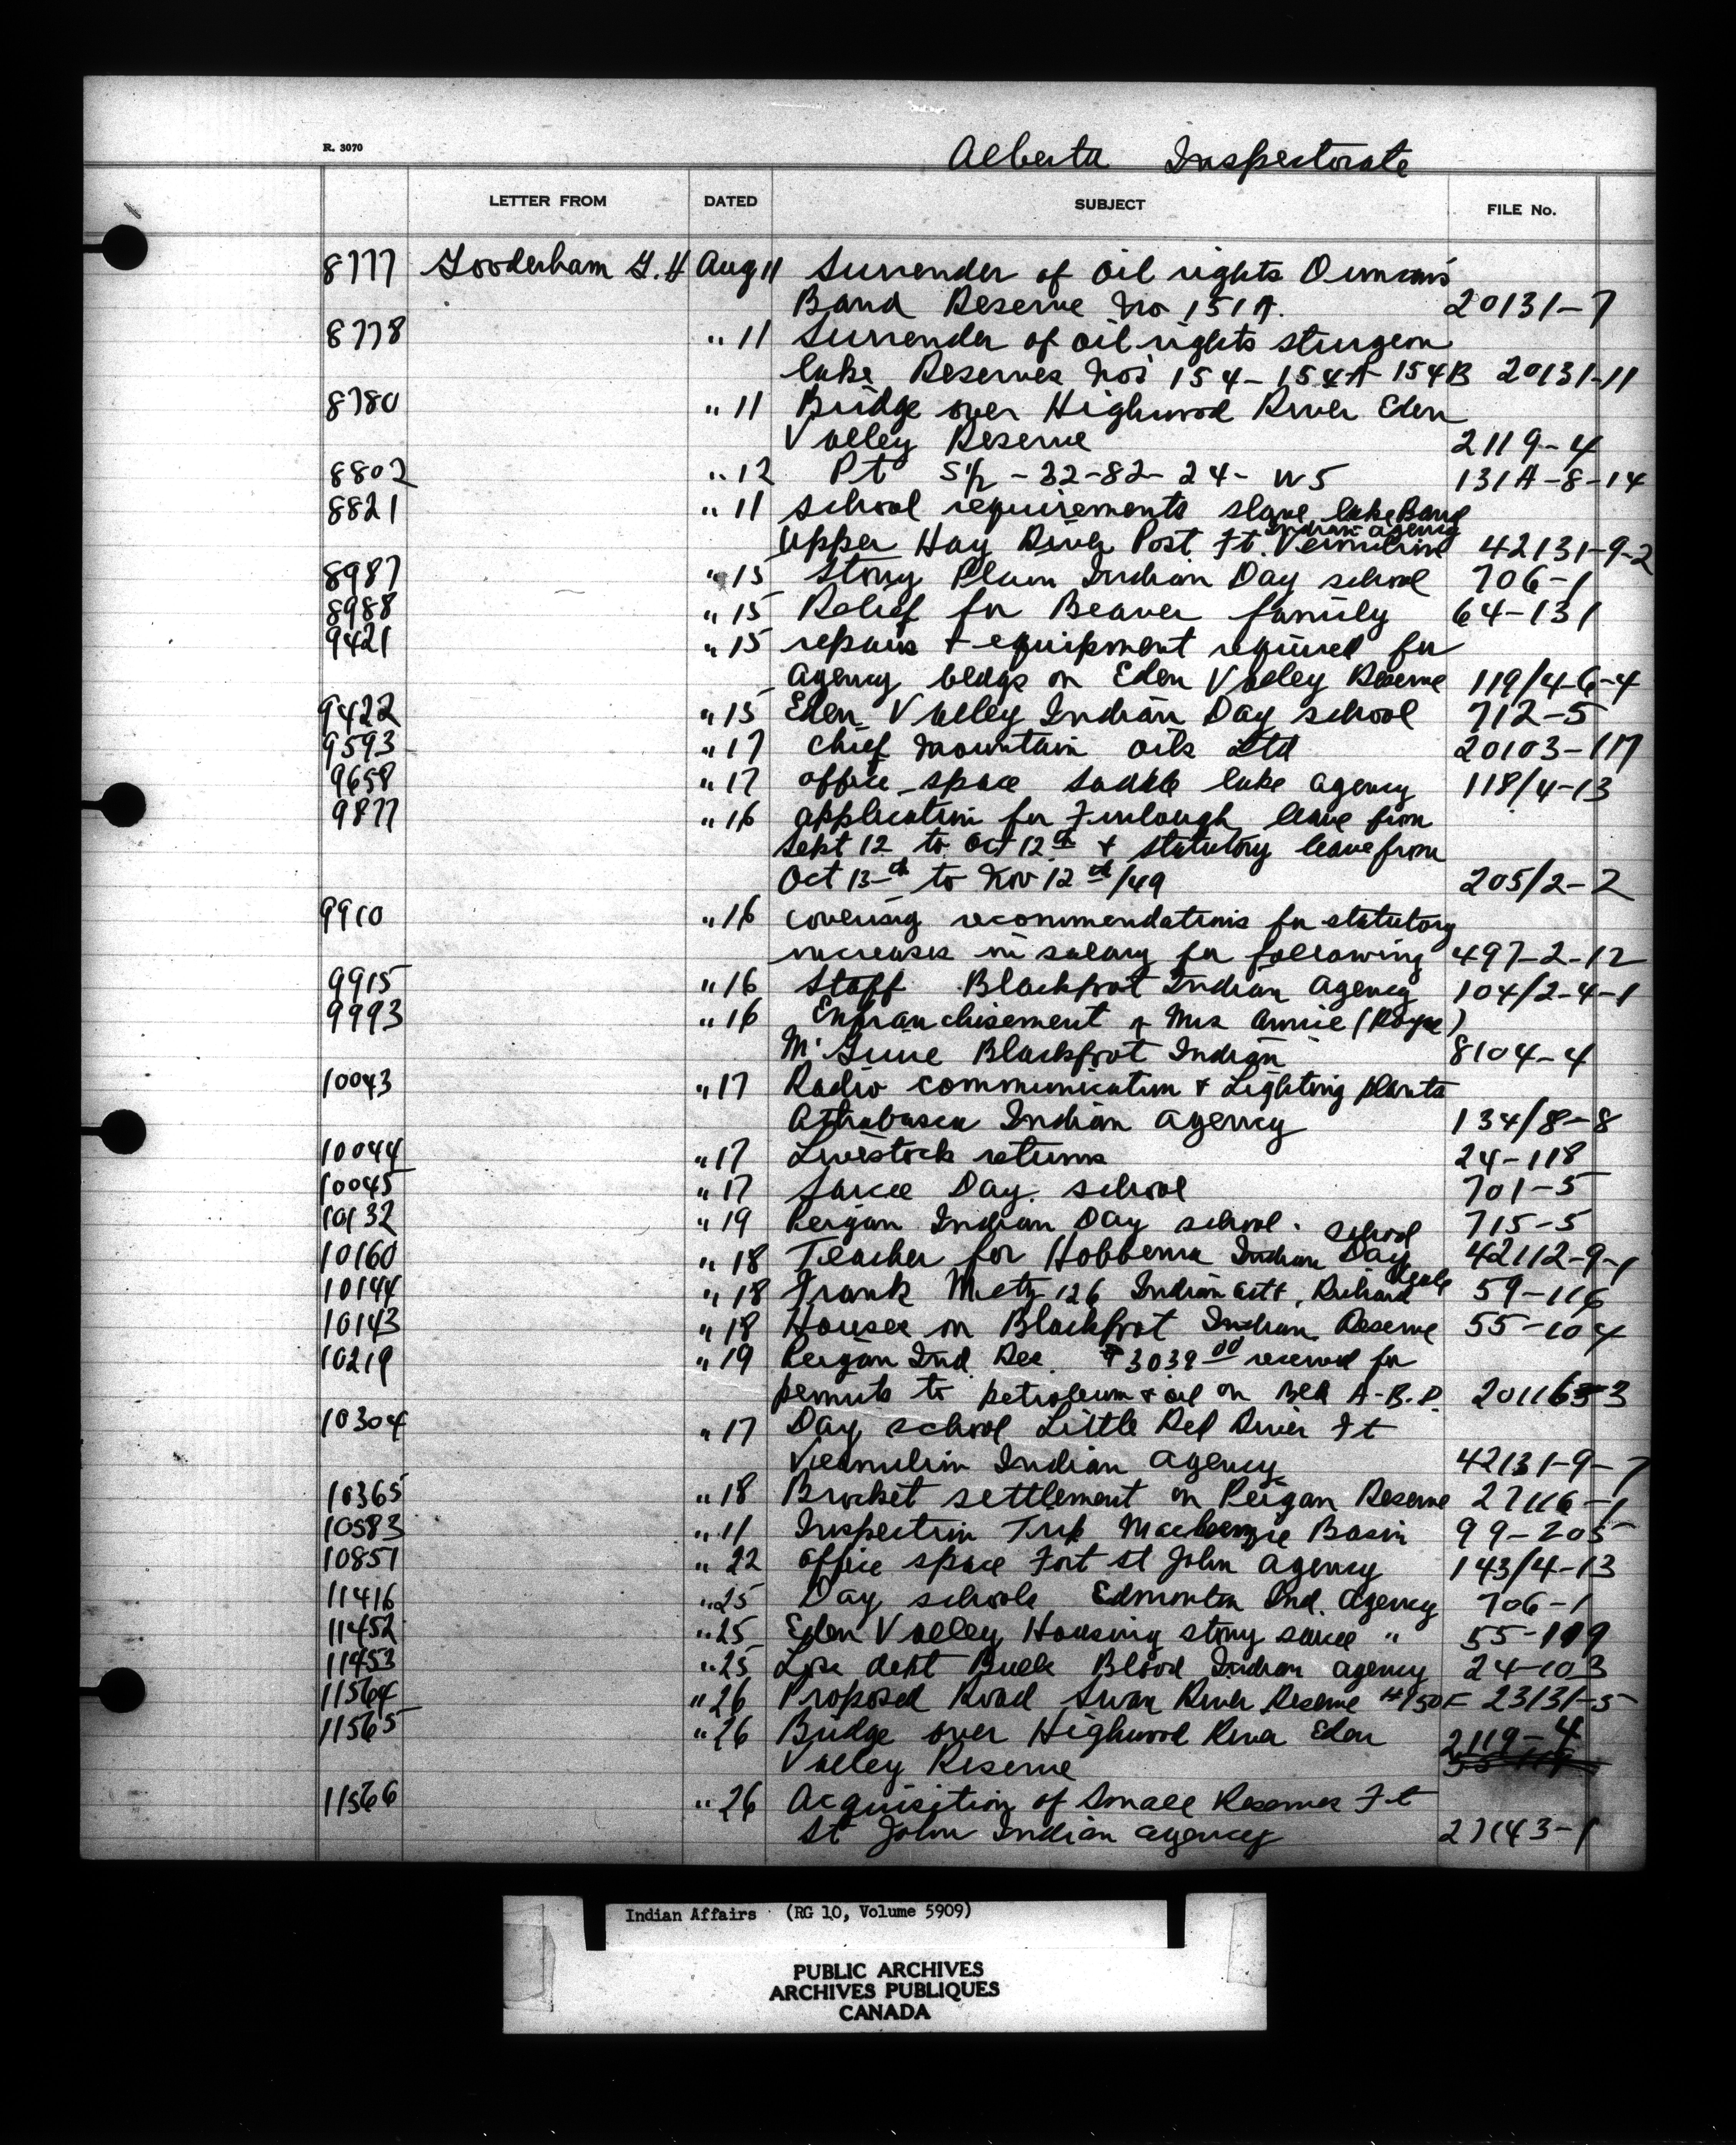 R. 3070
Alberta Inspectorate
LETTER FROM DATED SUBJECT FILE No.
8777 Gooderham G.H Aug 11 Surrender of oil rights Duncan's
Band Reserve No 151A. 20131-7
8778 " 11 Surrender of oil rights sturgeon
lake Reserves Nos 154-154A-154B 20131-11
8780 " 11 Bridge over Highwood River Eden
Valley Reserve 2119-4
8802 " 12 Pt S½-32-82-24-W5 131A-8-14
8821 " 11 school requirements slave lake Band
Indian agency
Upper Hay River Post Ft. Vermilion 42131-9-2
8987 " 15 Stony Plain Indian Day school 706-1
8988 " 15 Relief for Beaver family 64-131
9421 " 15 repairs + equipment required for
agency bldgs on Eden Valley Reserve 119/4-6-4
9422 " 15 Eden Valley Indian Day school 712-5
9593 " 17 Chief Mountain oils Ltd 20103-117
9658 " 17 office space Saddle lake agency 118/4-13
9877 " 16 application for Furlough leave from
Sept 12 to Oct 12th + statutory leave from
Oct 13th to Nov 12th/49 205/2-2
9910 " 16 covering recommendations for statutory
increases in salary for following 497-2-12
9915 " 16 Staff Blackfoot Indian Agency 104/2-4-1
9993 " 16 Enfranchisement of Mrs Annie (Royal)
Mc Blackfoot Indian 8104-4
10043 " 17 Radio communication + Lighting plants
Athabasca Indian agency 134/8-8
10044 " 17 Livestock returns 24-118
10045 " 17 Sarcee Day school 701-5
10132 " 19 Peigan Indian Day school. 715-5
school
10160 " 18 Teacher for Hobbema Indian Day 42112-9-1
10144 " 18 Frank Metz 126 Indian Act, Richard 59-116
10143 " 18 Houses on Blackfoot Indian Reserve 55-104
10219 " 19 Peigan Ind Res. $3039 00 received for
permits to petroleum + oil on Blk A-B.D. 201163-3
10304 " 17 Day school Little Red River Ft
Vermilion Indian Agency 42131-9-7
10365 " 18 Brocket settlement on Peigan Reserve 27116-1
10583 " 11 Inspection Trip Mackenzie Basin 99-205
10857 " 22 office space Fort St John Agency 143/4-13
11416 " 25 Day schools Edmonton Ind. Agency 706-1
11452 " 25 Eden Valley Housing stony sarcee " 55-119
11453 " 25 debt Bulls Blood Indian agency 24-103
11564 " 26 Proposed Road Swan River Reserve #150F 23131-5
11565 " 26 Bridge over Highwood River Eden 2119-4
Valley Reserve
11566 " 26 Acquisition of Small Reserves Ft
St John Indian agency 27143-1
Indian Affairs (RG 10, Volume 5909)
PUBLIC ARCHIVES
ARCHIVES PUBLIQUES
CANADA